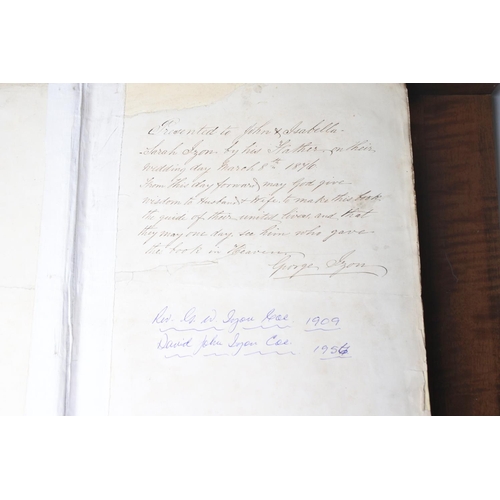 Presented to John & Isabella
Sarah Izon by his Father on their
wedding day March 8th 1876
From this day forward may God give
wisdom to Husband & Wife to make this book
the guide of their united lives and that
they may one day see him who gave
the book in Heaven
George Izon
Rev. G W Izon 1909
David John Izon 1956